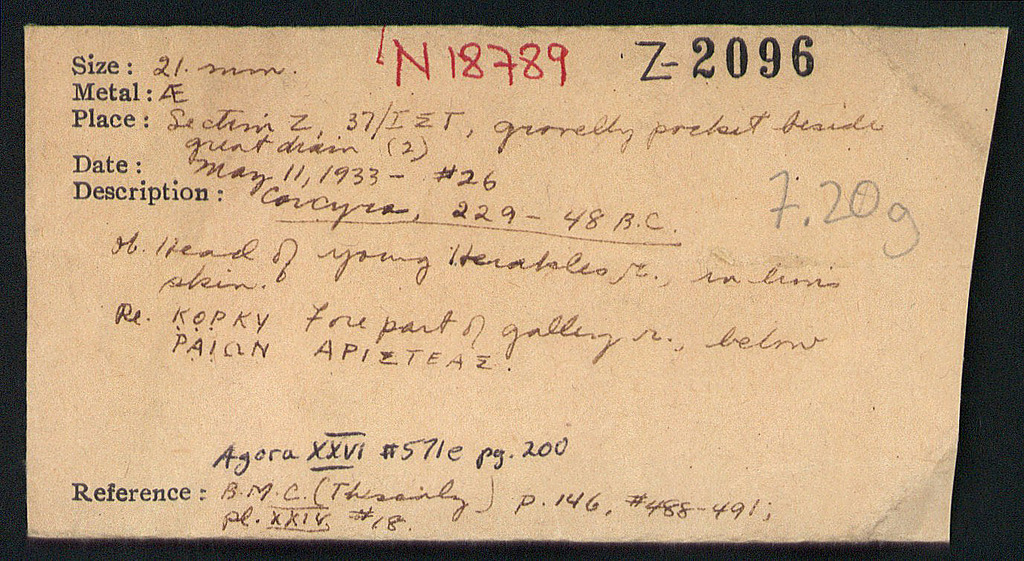 N 18789 Z-2096
Size: 21. mm.
Metal: Æ
Place: Section Z, 37/ΙΣΤ, gravelly pocket beside
great drain (2)
Date: May 11, 1933 - #26
Description: Corcyra, 229 - 48 B.C.
7.20g
Ob. Head of young Herakles, r., in lion's
skin.
Re. ΚΟΡΚΥ Fore part of galley r., below
ΡΑΙΩΝ ΑΡΙΣΤΕΑΣ.
Agora XXVI #571e pg. 200
Reference: B.M.C. (Thessaly) p. 146, #488-491;
pl. XXIV, #18.